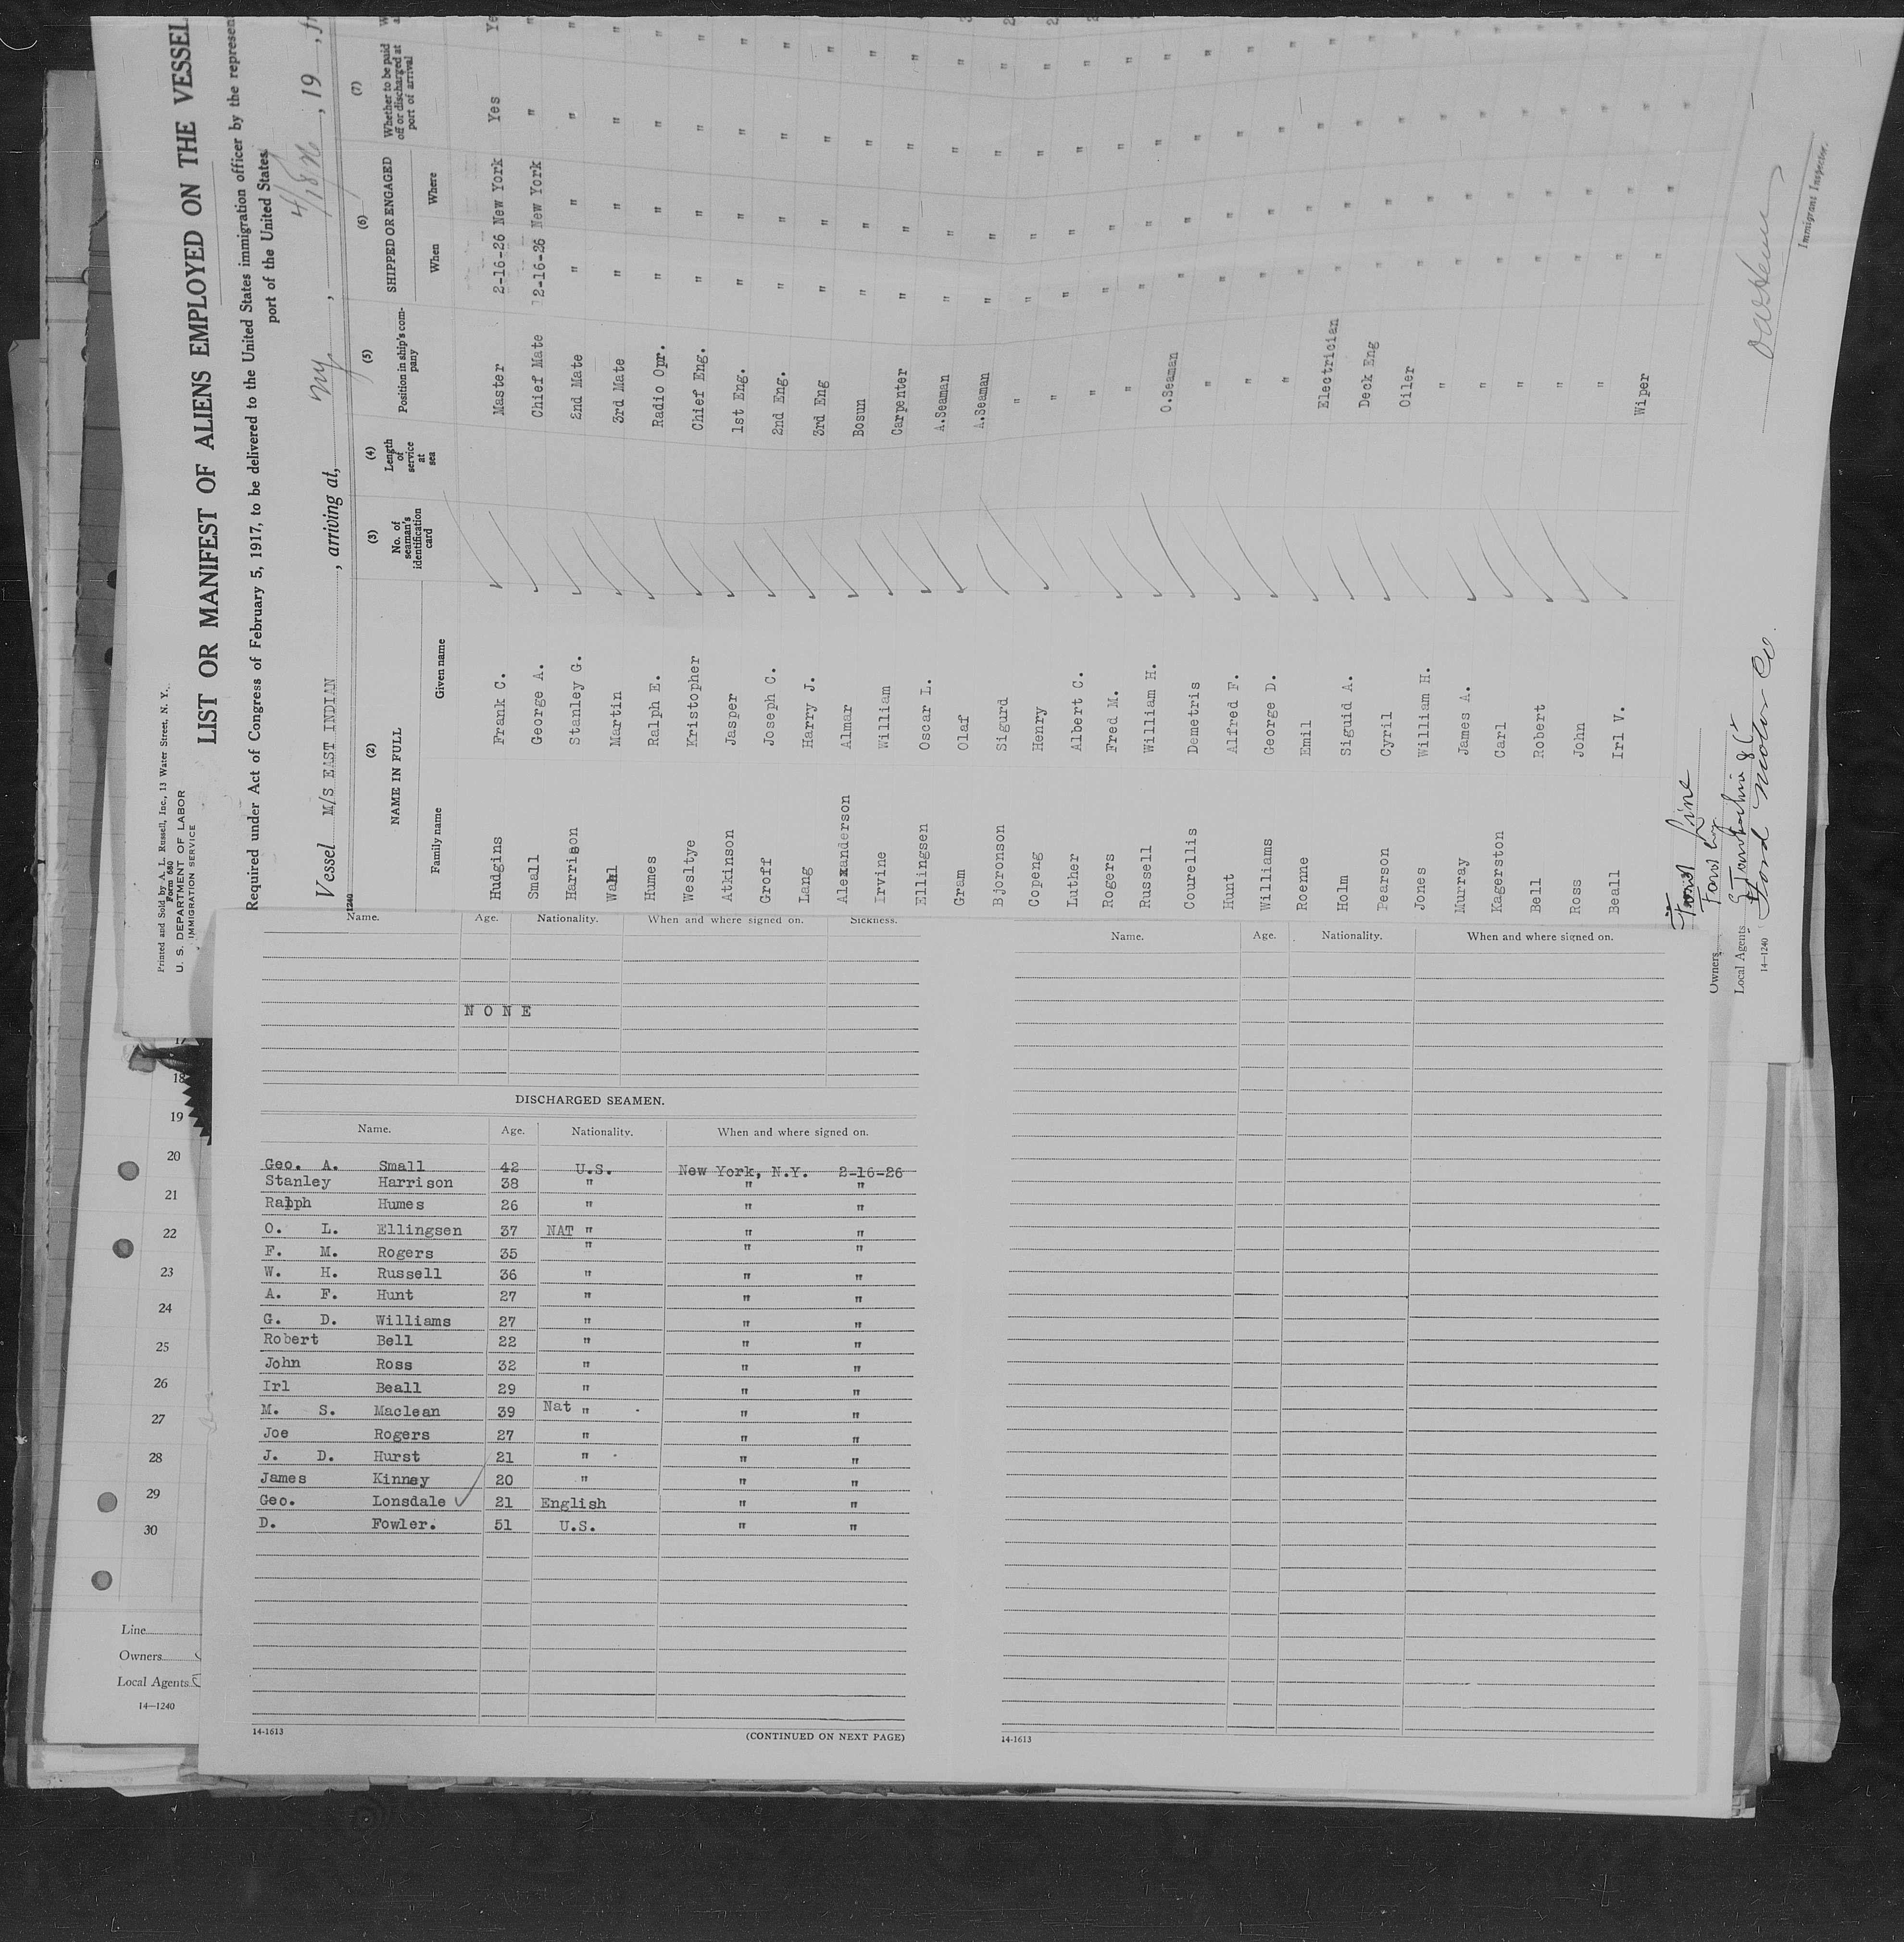 Printed and Sold by A. L. Russell, Inc., 13 Water Street, N. Y.
Form 680
U. S. DEPARTMENT OF LABOR
IMMIGRATION SERVICE
LIST OR MANIFEST OF ALIENS EMPLOYED ON THE VESSEL
Required under Act of Congress of February 5, 1917, to be delivered to the United States immigration officer by the represen
port of the United States
Vessel M/S EAST INDIAN, arriving at, NY, 4/18/26, 19
1240
(2) (3) (4) (5) (6) (7)
NAME IN FULL No. of seaman's identification card Length of service at sea Position in ship's company SHIPPED OR ENGAGED Whether to be paid off or discharged at port of arrival
Family name Given name When Where
Hudgins Frank C. Master 2-16-26 New York Yes Ye
Small George A. Chief Mate 2-16-26 New York " "
Harrison Stanley G. 2nd Mate " " " "
Wahl Martin 3rd Mate " " " "
Humes Ralph E. Radio Opr. " " " "
Wesltye Kristopher Chief Eng. " " " "
Atkinson Jasper 1st Eng. " " " "
Groff Joseph C. 2nd Eng. " " " "
Lang Harry J. 3rd Eng " " " "
Alexanderson Almar Bosun " " " "
Irvine William Carpenter " " " "
Ellingsen Oscar L. A.Seaman " " " "
Gram Olaf A.Seaman " " " "
Bjoronson Sigurd " " " " "
Copeng Henry " " " " "
Luther Albert C. " " " " "
Rogers Fred M. " " " " "
Russell William H. O.Seaman " " " "
Courellis Demetris " " " " "
Hunt Alfred F. " " " " "
Williams George D. " " " " "
Roenne Emil Electrician " " " "
Holm Siguid A. Deck Eng " " " "
Pearson Cyril Oiler " " " "
Jones William H. " " " " "
Murray James A. " " " " "
Kagerston Carl " " " " "
Bell Robert " " " " "
Ross John " " " " "
Beall Irl V. Wiper " " " "
Ford Line
Owners
Local Agents
Ford Motor Co.
14—1240
Immigrant Inspector.
Name. Age. Nationality. When and where signed on. Sickness.
NONE
DISCHARGED SEAMEN.
Name. Age. Nationality. When and where signed on.
Geo. A. Small 42 U.S. New York, N.Y. 2-16-26
Stanley Harrison 38 " " "
Ralph Humes 26 " " "
O. L. Ellingsen 37 NAT " " "
F. M. Rogers 35 " " "
W. H. Russell 36 " " "
A. F. Hunt 27 " " "
G. D. Williams 27 " " "
Robert Bell 22 " " "
John Ross 32 " " "
Irl Beall 29 " " "
M. S. Maclean 39 Nat " " "
Joe Rogers 27 " " "
J. D. Hurst 21 " " "
James Kinney 20 " " "
Geo. Lonsdale 21 English " "
D. Fowler. 51 U.S. " "
14-1613
(CONTINUED ON NEXT PAGE)
Name. Age. Nationality. When and where signed on.
14-1613
17
18
19
20
21
22
23
24
25
26
27
28
29
30
Line
Owners
Local Agents
14—1240